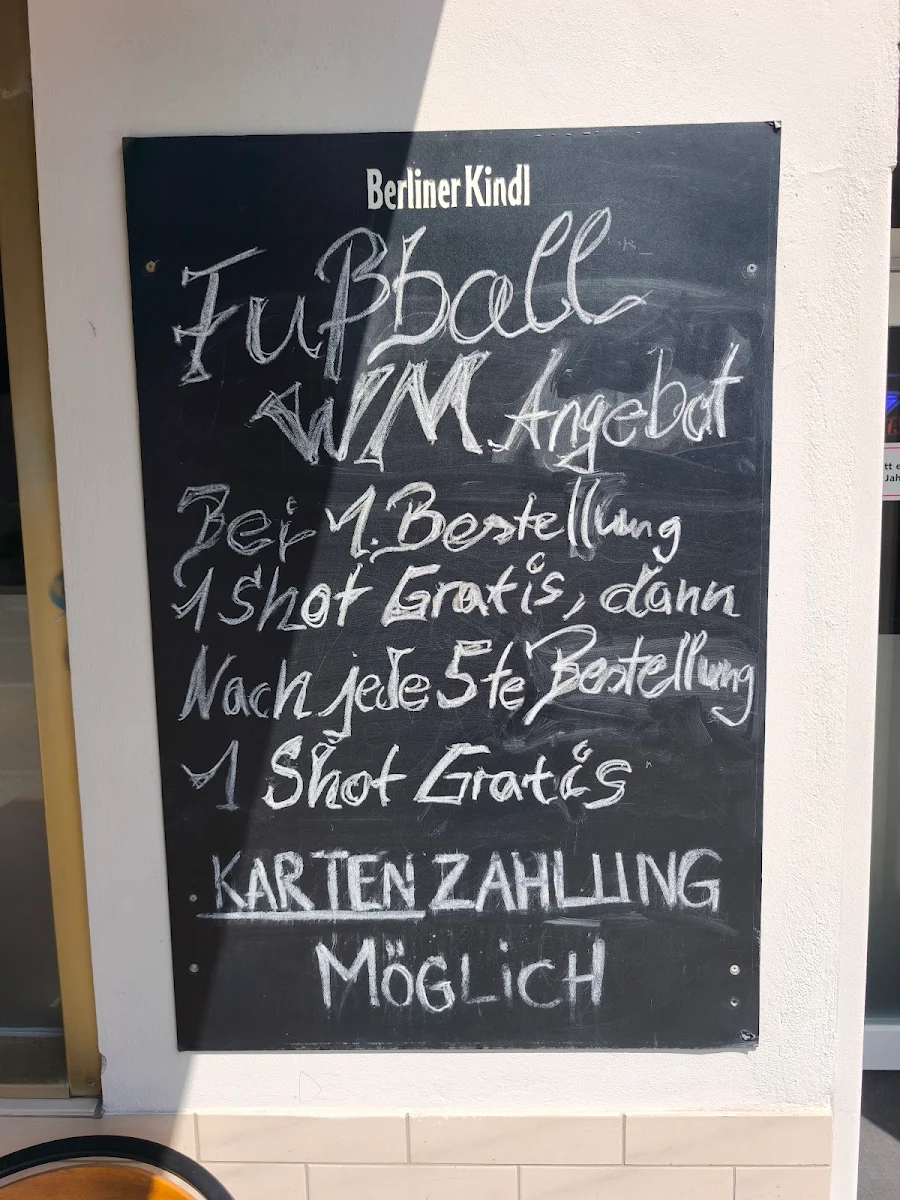 Berliner Kindl
Fußball
WM Angebot
Bei 1. Bestellung
1 Shot Gratis, dann
Nach jede 5te Bestellung
1 Shot Gratis
KARTEN ZAHLUNG
MÖGLiCH